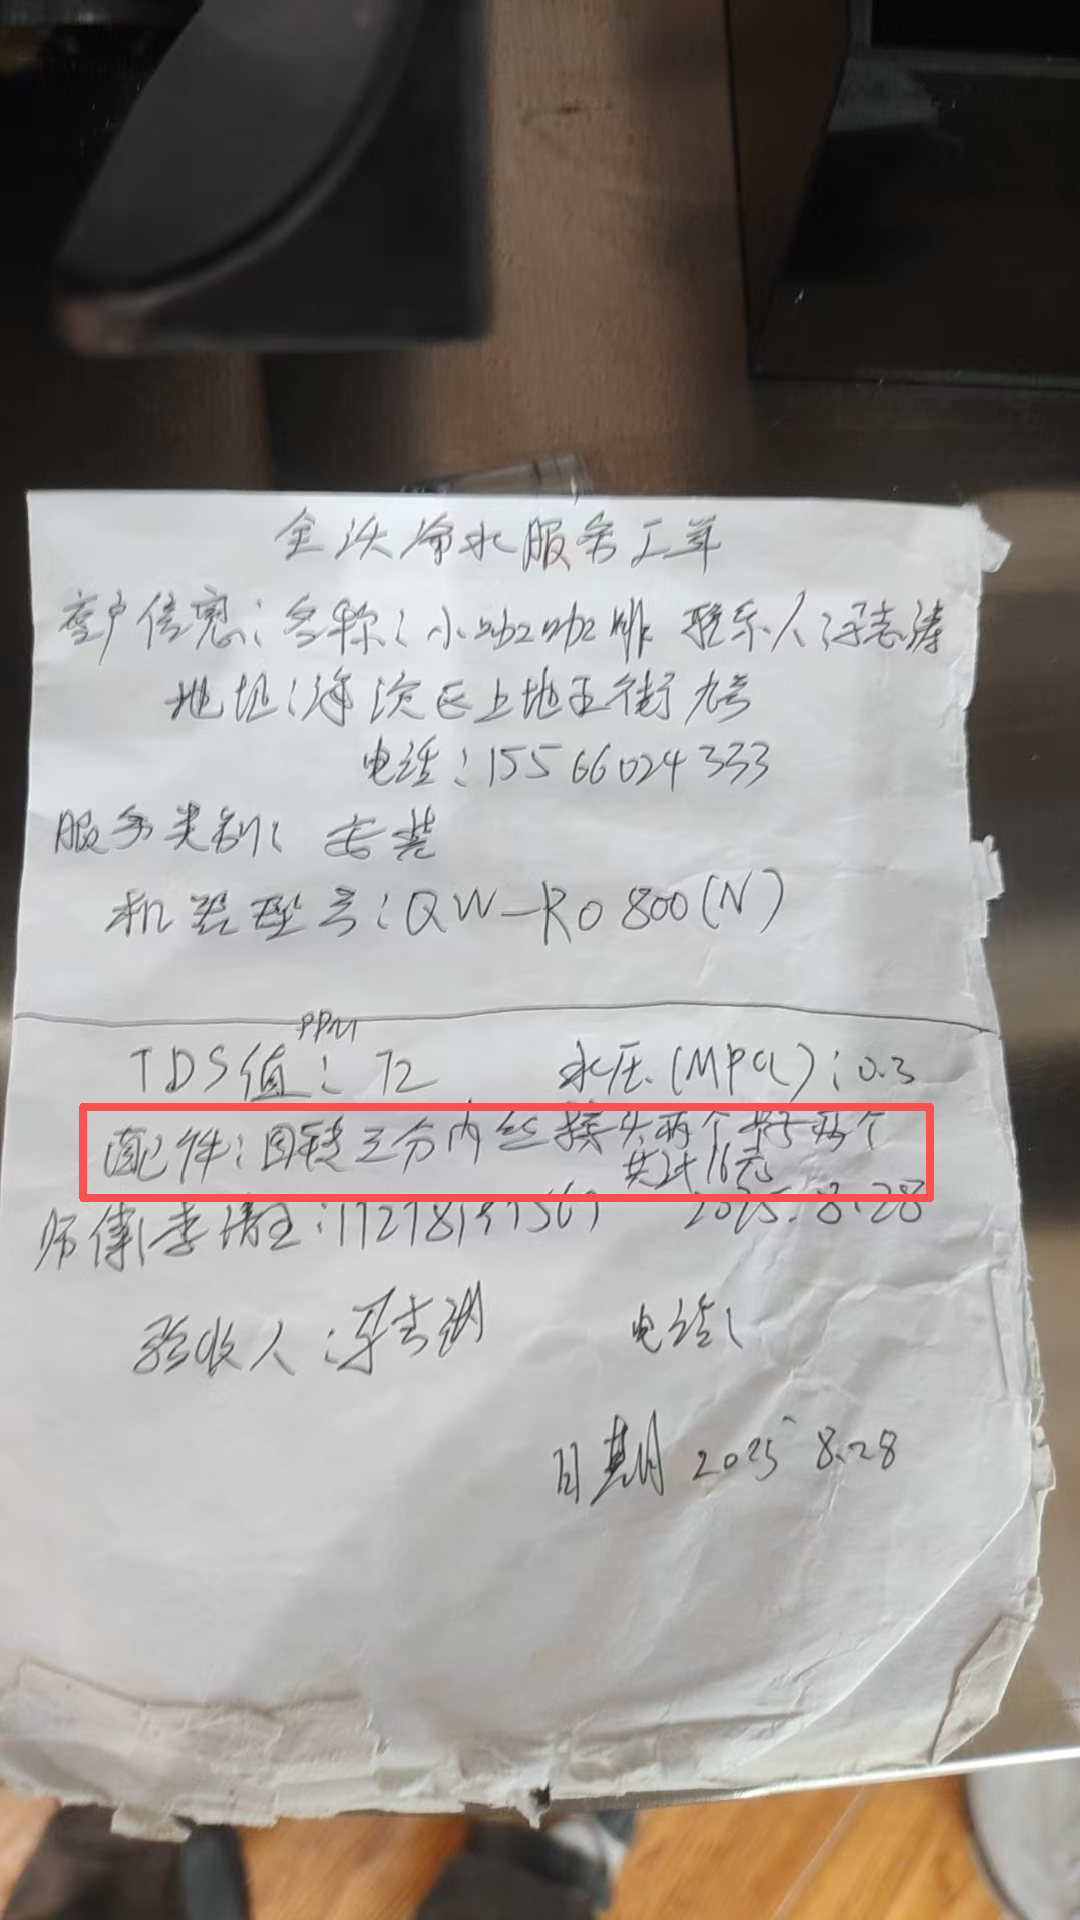 全沃净水服务工单
客户信息:名称:小咖咖啡 联系人:冯志涛
地址:海淀区上地五街九号
电话:15566024333
服务类别:安装
机器型号:QW-RO800(N)
TDS值:72 PPM 水压(MPa):0.3
配件:三分内丝接头两个 两个
共计16元
师傅:李清 2025.8.28
验收人: 电话:
日期 2025 8.28